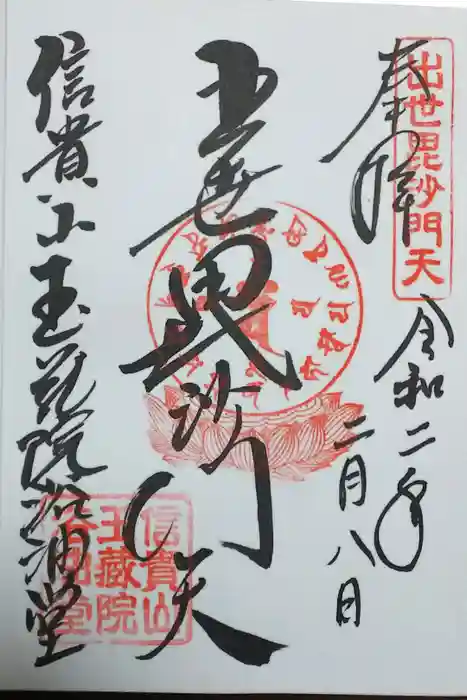 出世毘沙門天
奉拝
令和二年
二月八日
出世毘沙門天
信貴山玉蔵院浴油堂
信貴山
玉藏院
浴油堂